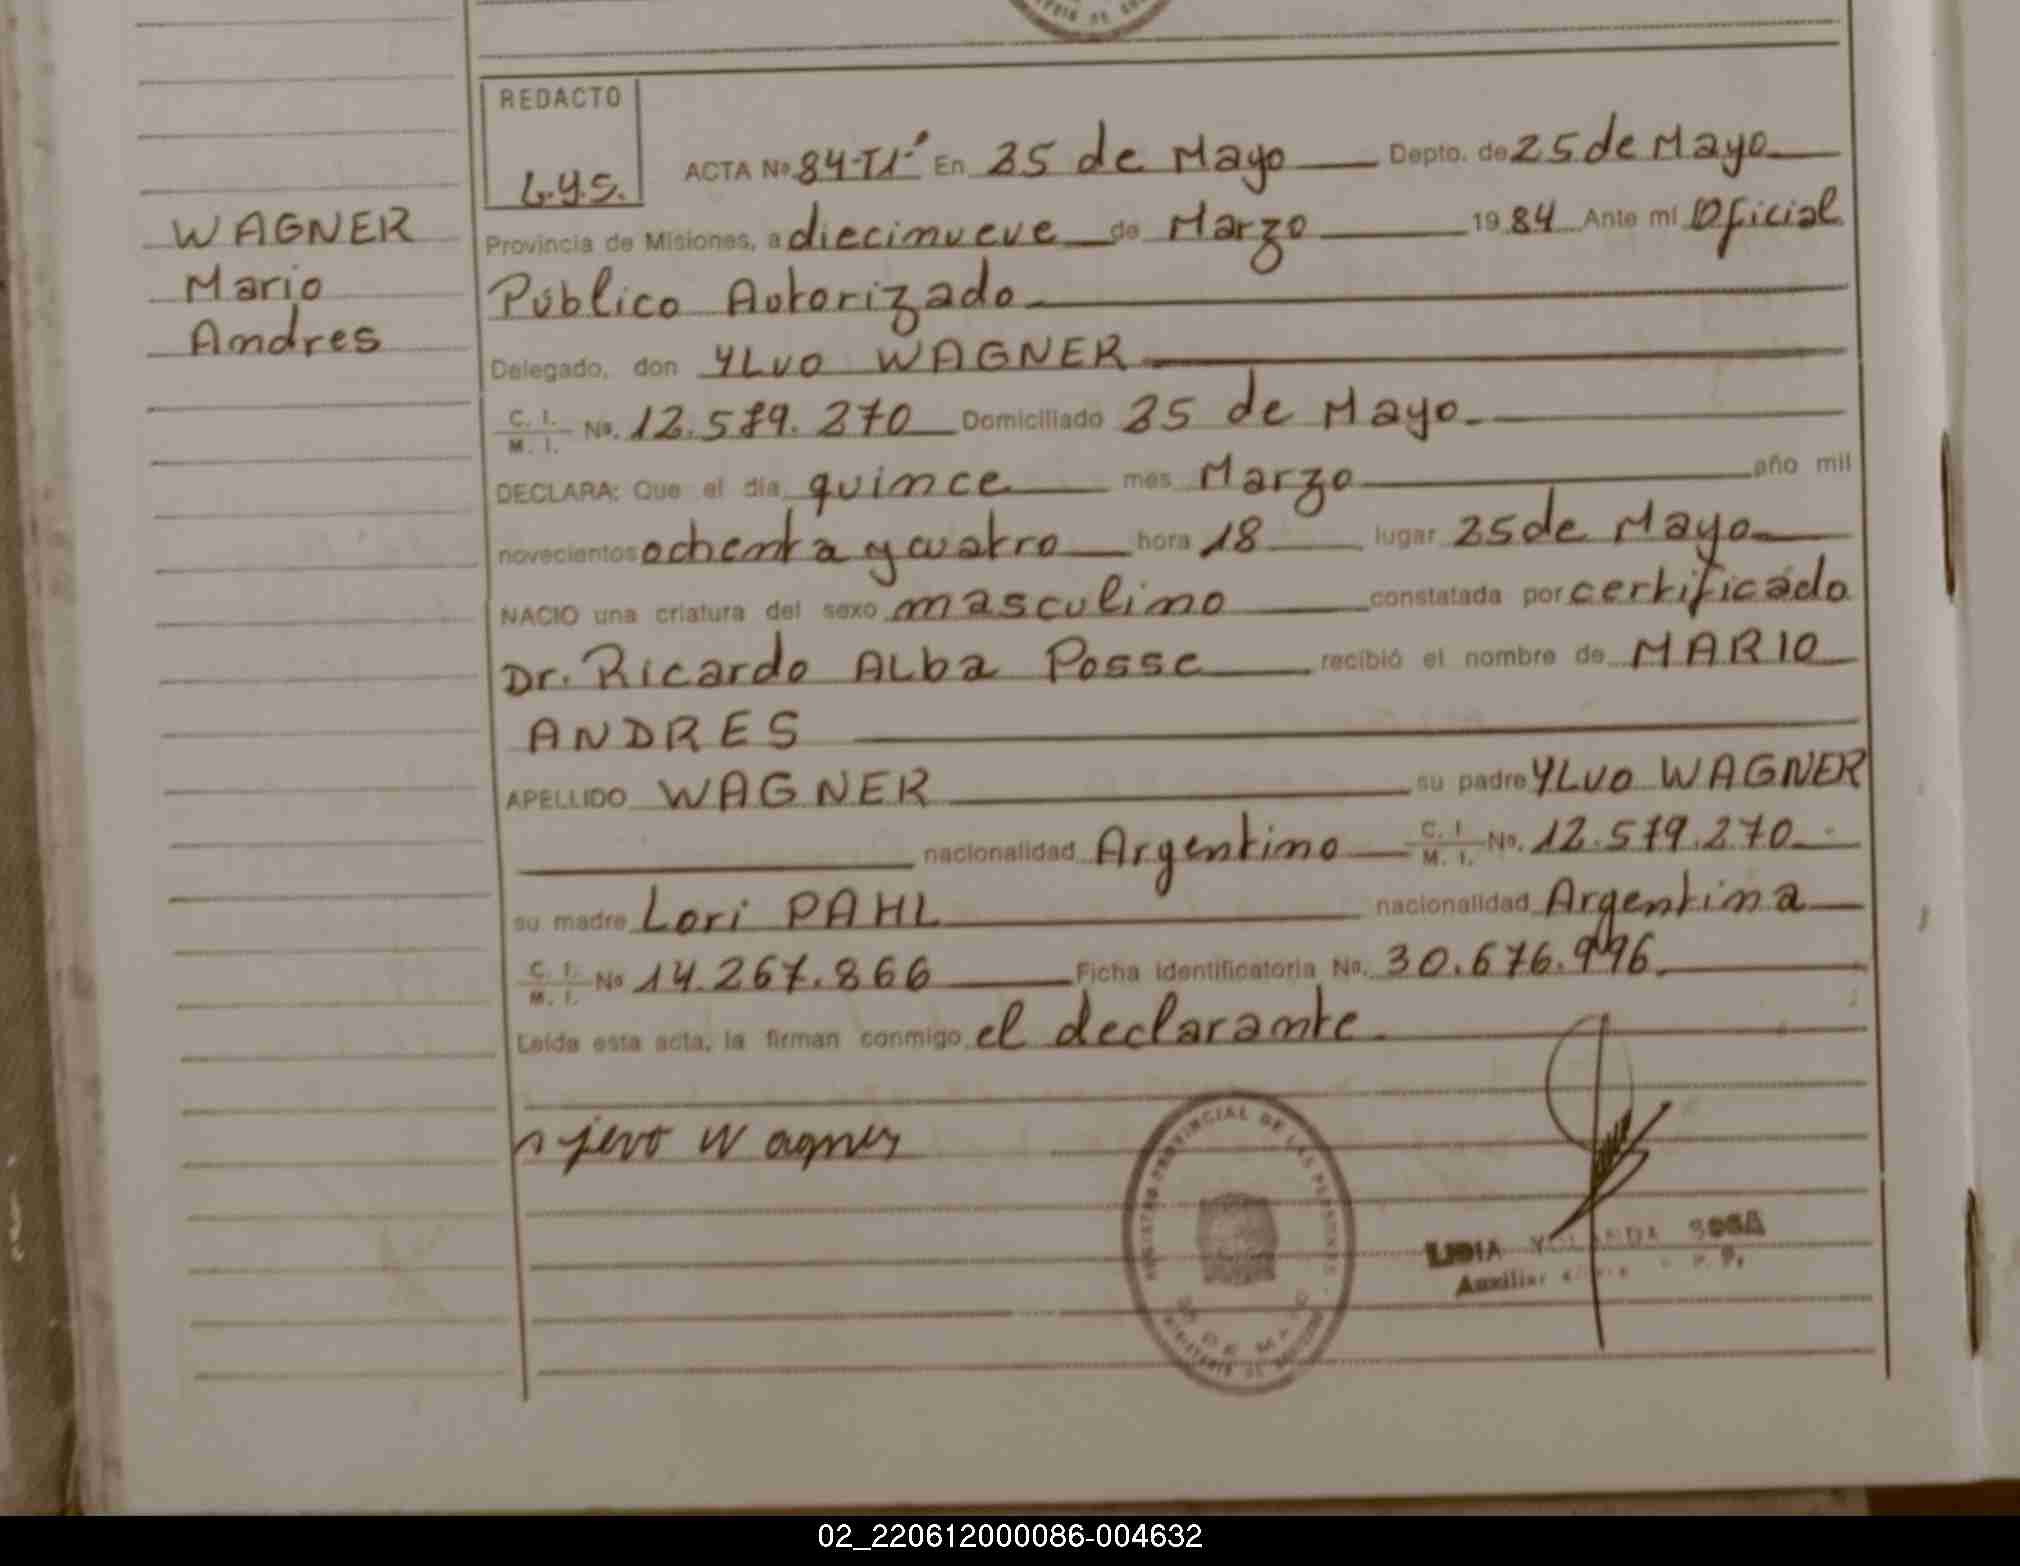 REDACTO
L.Y.S.
ACTA Nº 84-T1- En 25 de Mayo Depto. de 25 de Mayo
WAGNER
Mario
Andres
Provincia de Misiones, a diecinueve de Marzo 1984 Ante mi Oficial
Público Autorizado
Delegado, don YLVO WAGNER
C. I. M. I. Nº. 12.579.270 Domiciliado 25 de Mayo
DECLARA: Que el día quince mes Marzo año mil
novecientos ochenta y cuatro hora 18 lugar 25 de Mayo
NACIO una criatura del sexo masculino constatada por certificado
Dr. Ricardo ALba Posse recibió el nombre de MARIO
ANDRES
APELLIDO WAGNER su padre YLVO WAGNER
nacionalidad Argentino C. I. M. I. Nº. 12.579.270
su madre Lori PAHL nacionalidad Argentina
C. I. M. I. Nº 14.267.866 Ficha identificatoria Nº. 30.676.996
Leída esta acta, la firman conmigo el declarante
Wagner
REGISTRO PROVINCIAL DE LAS PERSONAS
LIDIA SOSA
Auxiliar
02_220612000086-004632